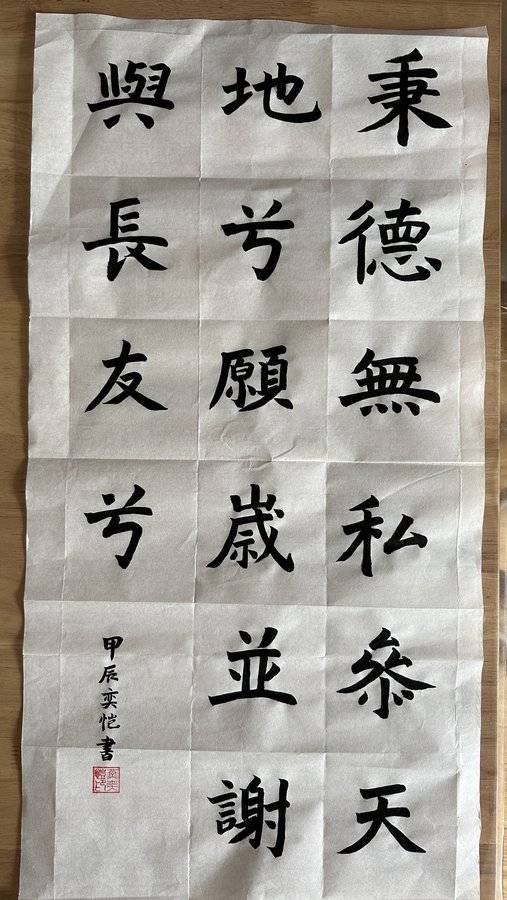 秉德無私叅天
地兮願嵗並謝
與長友兮
甲辰奕恺書